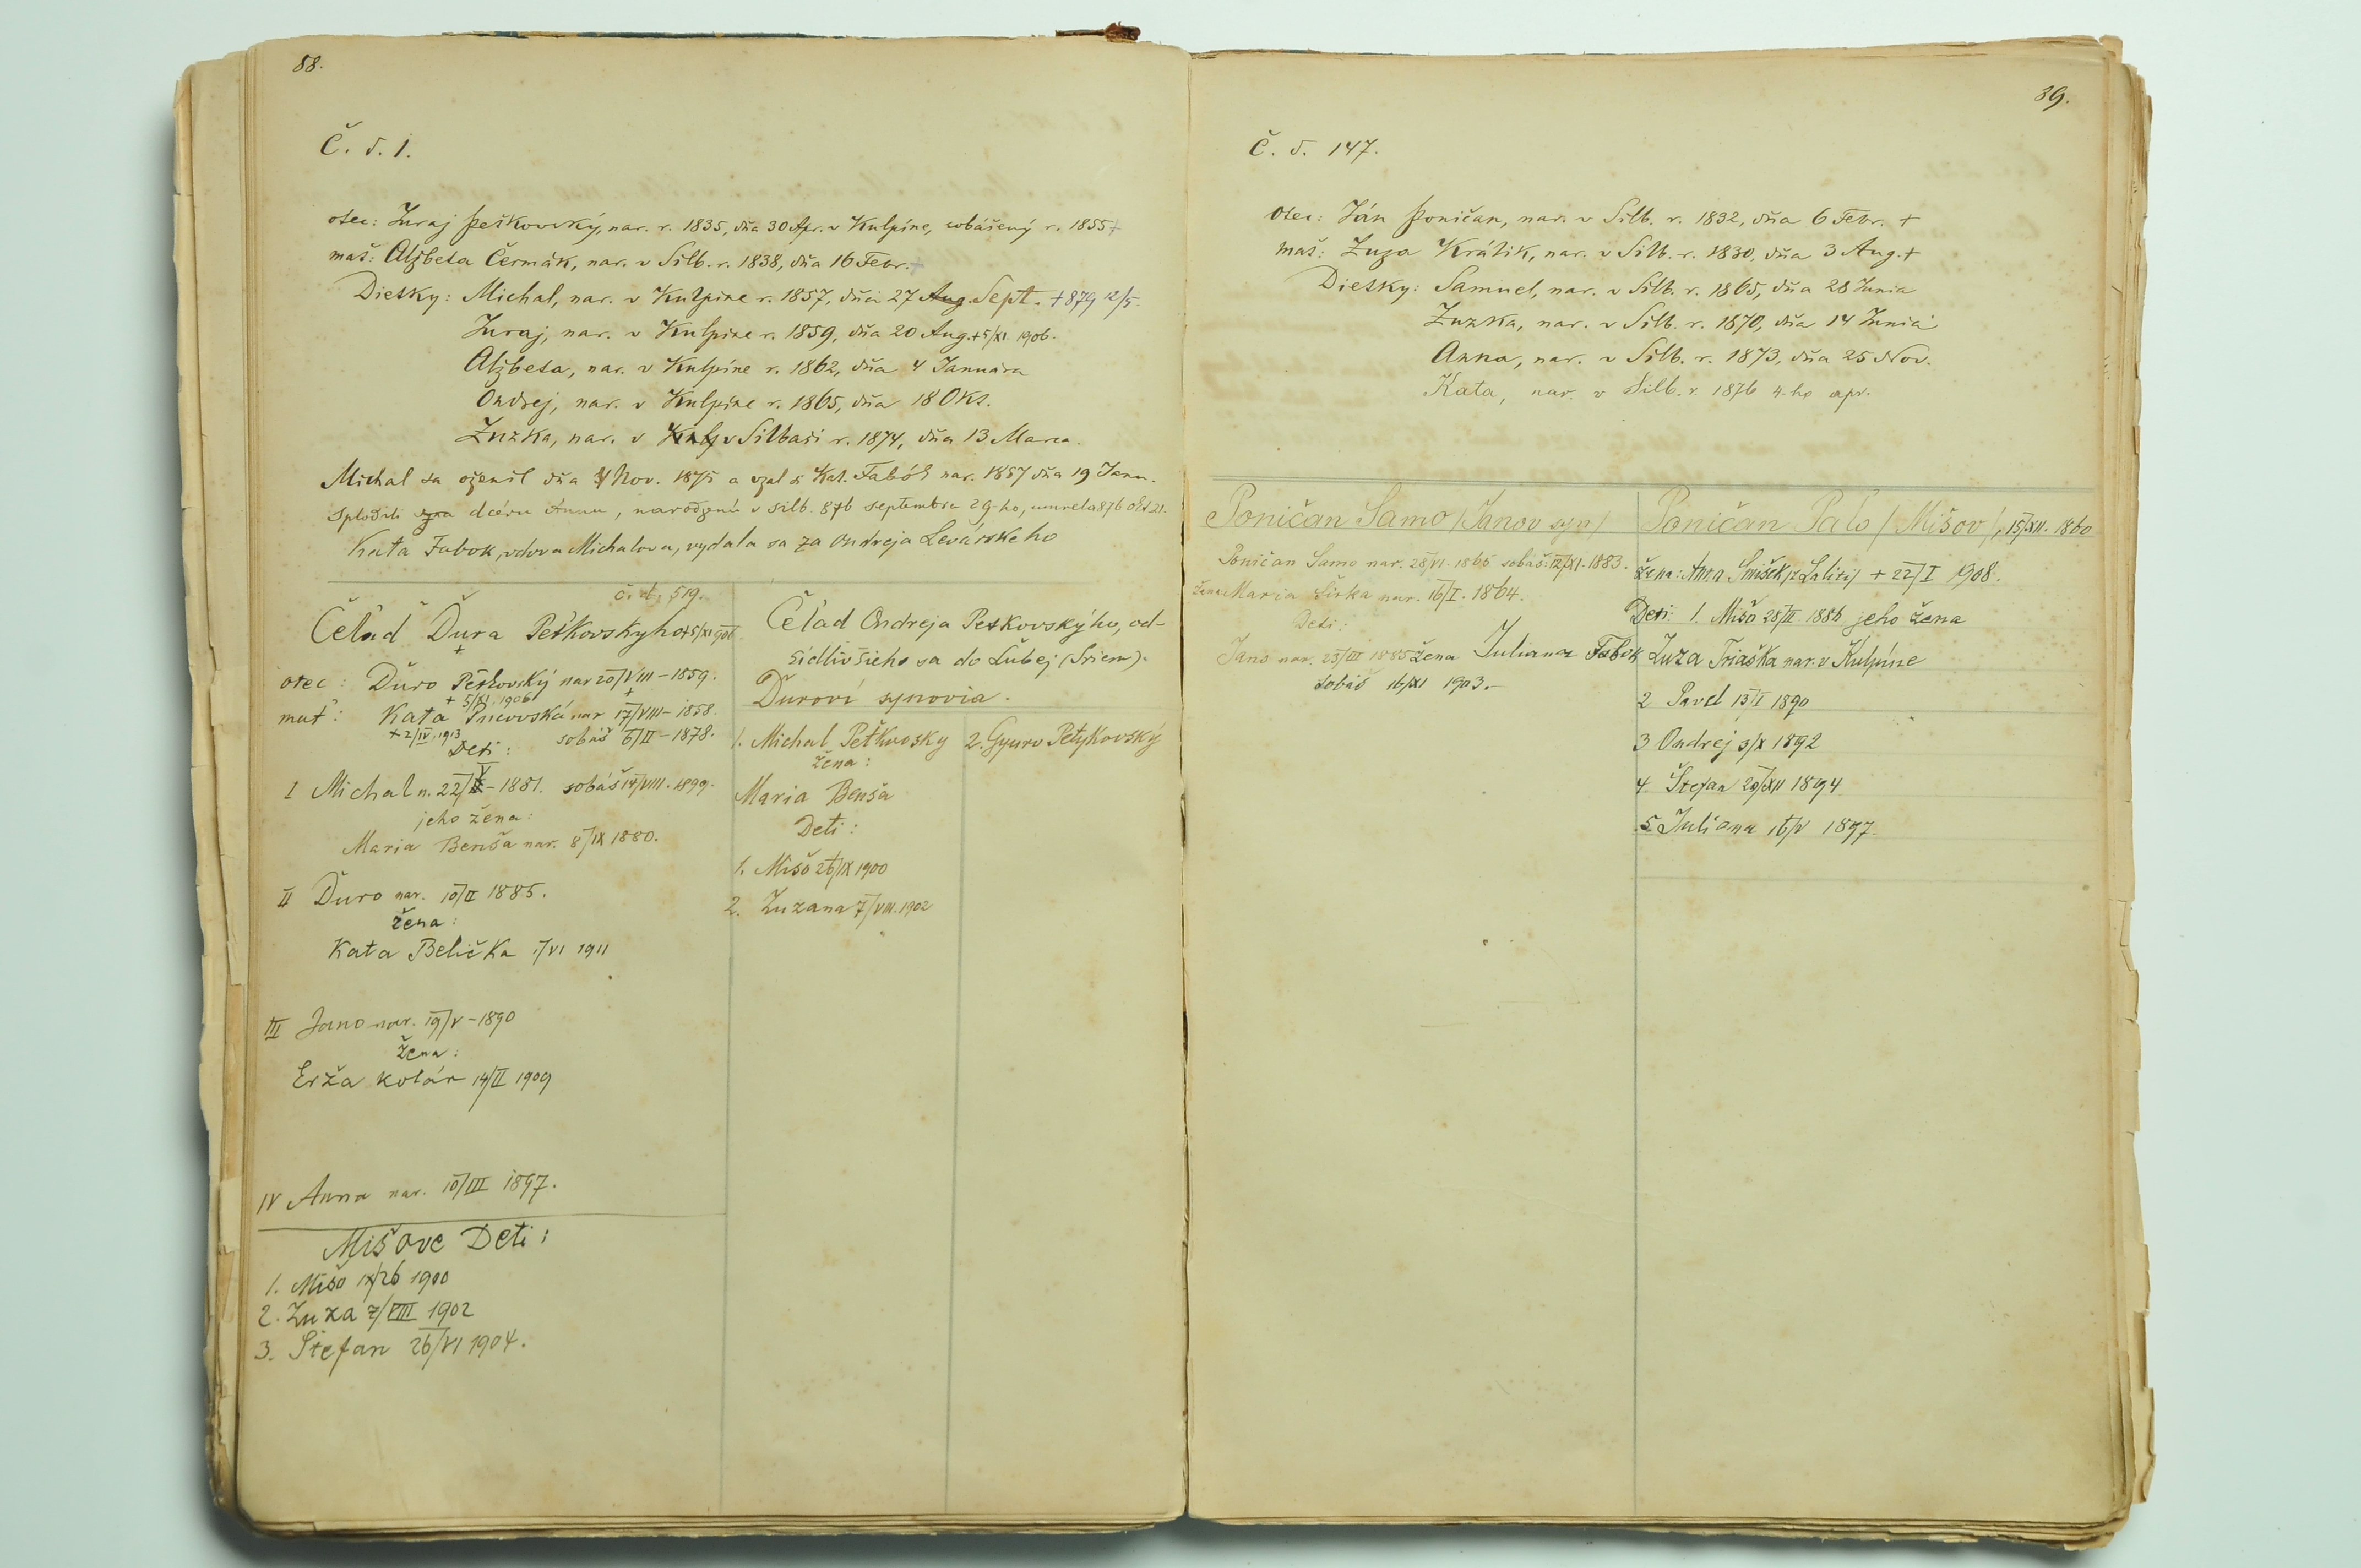 88.
Č. d. 1.
otec: Juraj Peťkovský, nar. r. 1835, dňa 30 Apr. v Kulpíne, sobášený r. 1855 +
mať: Alžbeta Čermák, nar. v Silb. r. 1838, dňa 16 Febr. +
Dietky: Michal, nar. v Kulpíne r. 1857, dňa 27 Aug. Sept. + 879 12/5.
Juraj, nar. v Kulpíne r. 1859, dňa 20 Aug. + 5/XI 1906.
Alžbeta, nar. v Kulpíne r. 1862, dňa 4 Januára
Ondrej, nar. v Kulpíne r. 1865, dňa 18 Okt.
Zuzka, nar. v Kulp v Silbaši r. 1874, dňa 13 Marca.
Michal sa oženil dňa Nov. 1875 a vzal si Kat. Fabók nar. 1857 dňa 19 Janu.
Splodili dcéru Annu, narodzenú v silb. 876 septembra 29-ho, umrela 876 okt 21.
Kata Fabok, vdova Michalova, vydala sa za Ondreja Levárskeho
č. d. 519.
Čelad Ďura Peťkovskyho + 5/XI 906
+
otec: Ďuro Peťkovský nar 20/VIII - 1859.
+ 5/XI. 1906
mať: Kata Pnevovská nar 17/VIII - 1858.
+ 2/IV. 1913
sobáš 6/II - 1878.
Deti:
I Michal n. 22/V - 1881. sobáš 14/VIII. 1899.
jeho žena:
Maria Benša nar. 8/IX 1880.
II Ďuro nar. 10/II 1885.
žena:
Kata Belička 1/VI 1911
III Jano nar. 19/V - 1890
žena:
Erža Kolár 14/II 1909
IV Anna nar. 10/III 1897.
Mišove Deti:
1. Mišo IX/26 1900
2. Zuza 7/VIII 1902
3. Štefan 26/VI 1904.
Čelad Ondreja Peťkovského, od-
sídlivšieho sa do Lubej (Sriem).
Ďuroví synovia.
1. Michal Peťkovsky
žena:
Maria Benša
Deti:
1. Mišo 26/IX 1900
2. Zuzana 7/VIII. 1902
2. Gyuro Petykovský
39.
Č. d. 147.
otec: Ján Poničan, nar. v Silb. r. 1832, dňa 6 Febr. +
mať: Zuza Králik, nar. v Silb. r. 1830, dňa 3 Aug. +
Dietky: Samuel, nar. v Silb. r. 1865, dňa 28 Junia
Zuzka, nar. v Silb. r. 1870, dňa 14 Junia
Anna, nar. v Silb. r. 1873, dňa 25 Nov.
Kata, nar. v Silb. r. 1876 4-ho apr.
Poničan Samo /Janov syn/
Poničan Samo nar. 28/VI. 1865 sobáš: 12/XI. 1883.
žena: Maria Širka nar. 16/I. 1864.
Deti:
Jano nar. 25/III 1885 žena Juliana Fabok
sobáš 16/XI 1903.-
Poničan Paľo /Mišov/, 15/XII. 1860
žena: Anna Smišek /z Lalite/ + 22/I 1908.
Deti: 1. Mišo 28/II 1886 jeho žena
Zuza Triaška nar. v Kulpíne
2 Pavel 13/I 1890
3 Ondrej 3/X 1892
4 Štefan 29/XII 1894
5 Juliana 16/V 1897.